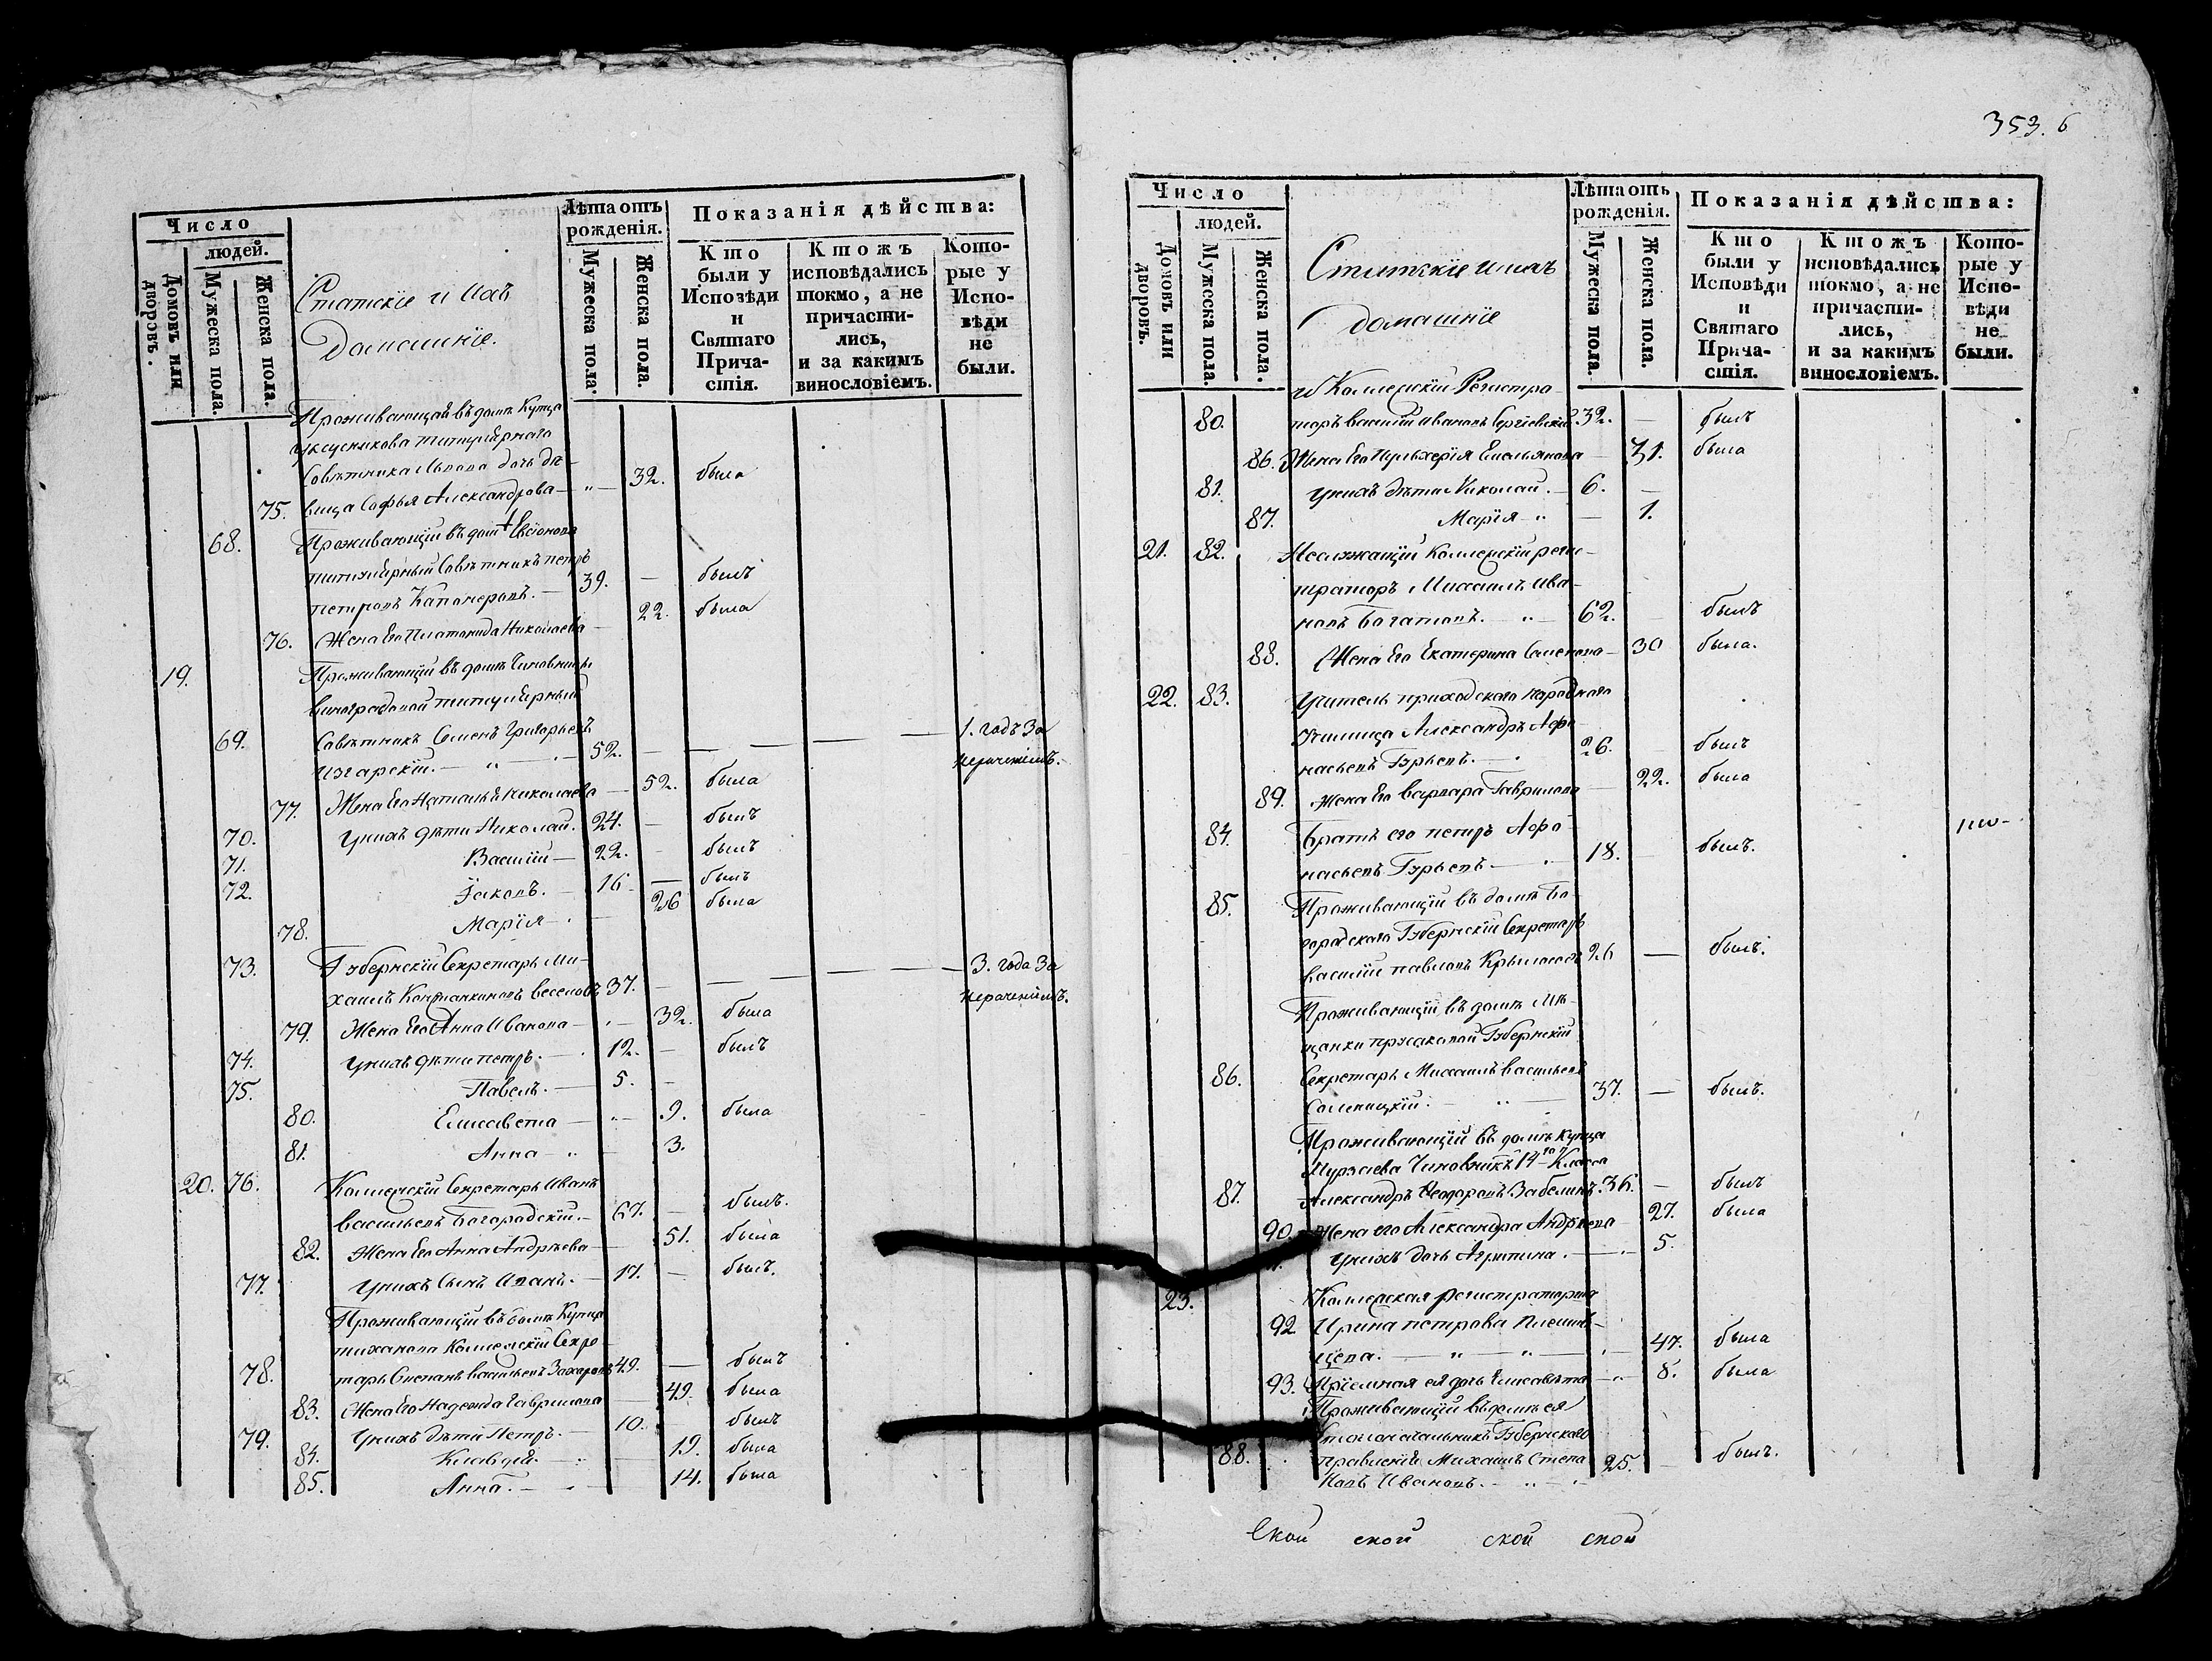 353. 6
Число
людей.
Домовъ или дворовъ.
Мужеска пола.
Женска пола.
Статскіе и Ихъ
Домашніе.
Лѣта отъ
рожденія.
Мужеска пола.
Женска пола.
Показанія дѣйства:
Кто
были у
Исповѣди
и
Святаго
Прича-
стія.
Ктожъ
исповѣдались
токмо, а не
причасти-
лись,
и за какимъ
винословіемъ.
Кото-
рые у
Испо-
вѣди
не
были.
Проживающая въ домѣ Купца
титулярнаго
Совѣтника дочь дѣ-
75. вица Софья Александрова — " — 32. была
68. Проживающій въ домѣ
титулярный Совѣтникъ петръ
петровъ 39. — былъ
76. Жена Его Платонида Николаева — 22. была
19. Проживающій въ домѣ Чиновницы
виноградовой титулярный
69. Совѣтникъ Семенъ Григорьевъ 1. годъ За
Изгарскій. — " — 52. — — — — нераченіемъ.
77. Жена Его Наталья Николаева — 52. была
70. У нихъ дѣти Николай. 24. — былъ
71. Василій — 22. — былъ
72. Іаковъ. — 16 — былъ
78. Марія — 26 была
73. Губернскій Секретарь Ми- 3. года За
хаилъ Константиновъ веселовъ 37. — — — — нераченіемъ.
79. Жена Его Анна Иванова — 32. была
74. У нихъ дѣти петръ. — 12. — былъ
75. Павелъ. — 5. —
80. Елисавета — 9. была
81. Анна — " — 3.
20. 76. Коллежскій Секретарь Иванъ
васильевъ Богородскій. — 67. — былъ.
82. Жена Его Анна Андреева — 51. была
77. У нихъ Сынъ Иванъ. — 17. — былъ.
Проживающій въ домѣ Купца
тиханова Коллежскій Секре-
78. тарь Степанъ васильевъ Захаровъ 49. — былъ
83. Жена Его Надежда Гаврилова — 49. была
79. У нихъ дѣти Петръ. — 10. былъ
84. Клавдія. — 19. была
85. Анна. — 14. была
Число
людей.
Домовъ или дворовъ.
Мужеска пола.
Женска пола.
Статскіе и ихъ
домашніе
Лѣта отъ
рожденія.
Мужеска пола.
Женска пола.
Показанія дѣйства:
Кто
были у
Исповѣди
и
Святаго
Прича-
стія.
Ктожъ
исповѣдались
токмо, а не
причасти-
лись,
и за какимъ
винословіемъ.
Кото-
рые у
Испо-
вѣди
не
были.
Коллежскій Регистра-
80. торъ василій ивановъ Сергіевскій 32. — былъ
86. Жена Его Пульхерія Емельянова — 31. была
81. У нихъ дѣти Николай. — 6. —
87. Марія — " — 1.
21. 82. Неслужащій Коллежскій реги-
траторъ Михаилъ Ива-
новъ Богатовъ. — " — 62. — былъ
88. Жена Его Екатерина Семенова — 30 была.
22. 83. Учитель приходскаго народнаго
Училища Александръ Афа-
насьевъ Гурьевъ. — 26. — былъ
89. Жена Его варвара Гаврилова — 22. была
84. Братъ его петръ Афа-
насьевъ Гурьевъ. — 18. — былъ.
85. Проживающій въ домѣ Бо-
городскаго Губернскій Секретарь
василій павловъ Крыловъ 26 — былъ.
Проживающій въ домѣ Мѣ-
щанки Губернскій
86. Секретарь Михаилъ васильевъ
37. — былъ.
Проживающій въ домѣ купца
Мурзаева Чиновникъ 14го Класса
87. Александръ Ѳеодоровъ Забелинъ. 36. — былъ
90. Жена его Александра Андреева — 27. была
У нихъ дочь Агрипина. — 5.
23. Коллежская регистраторша
92 Ирина петрова Плешив-
цева. — " — " — 47. была
93. Пріемная ея дочь Елисавета — 8. была
Проживающій въ домѣ ея
Столоначальникъ Губернскаго
88. правленія Михаилъ Степа
новъ Ивановъ. — 25. — былъ.
Ской ской ской ской